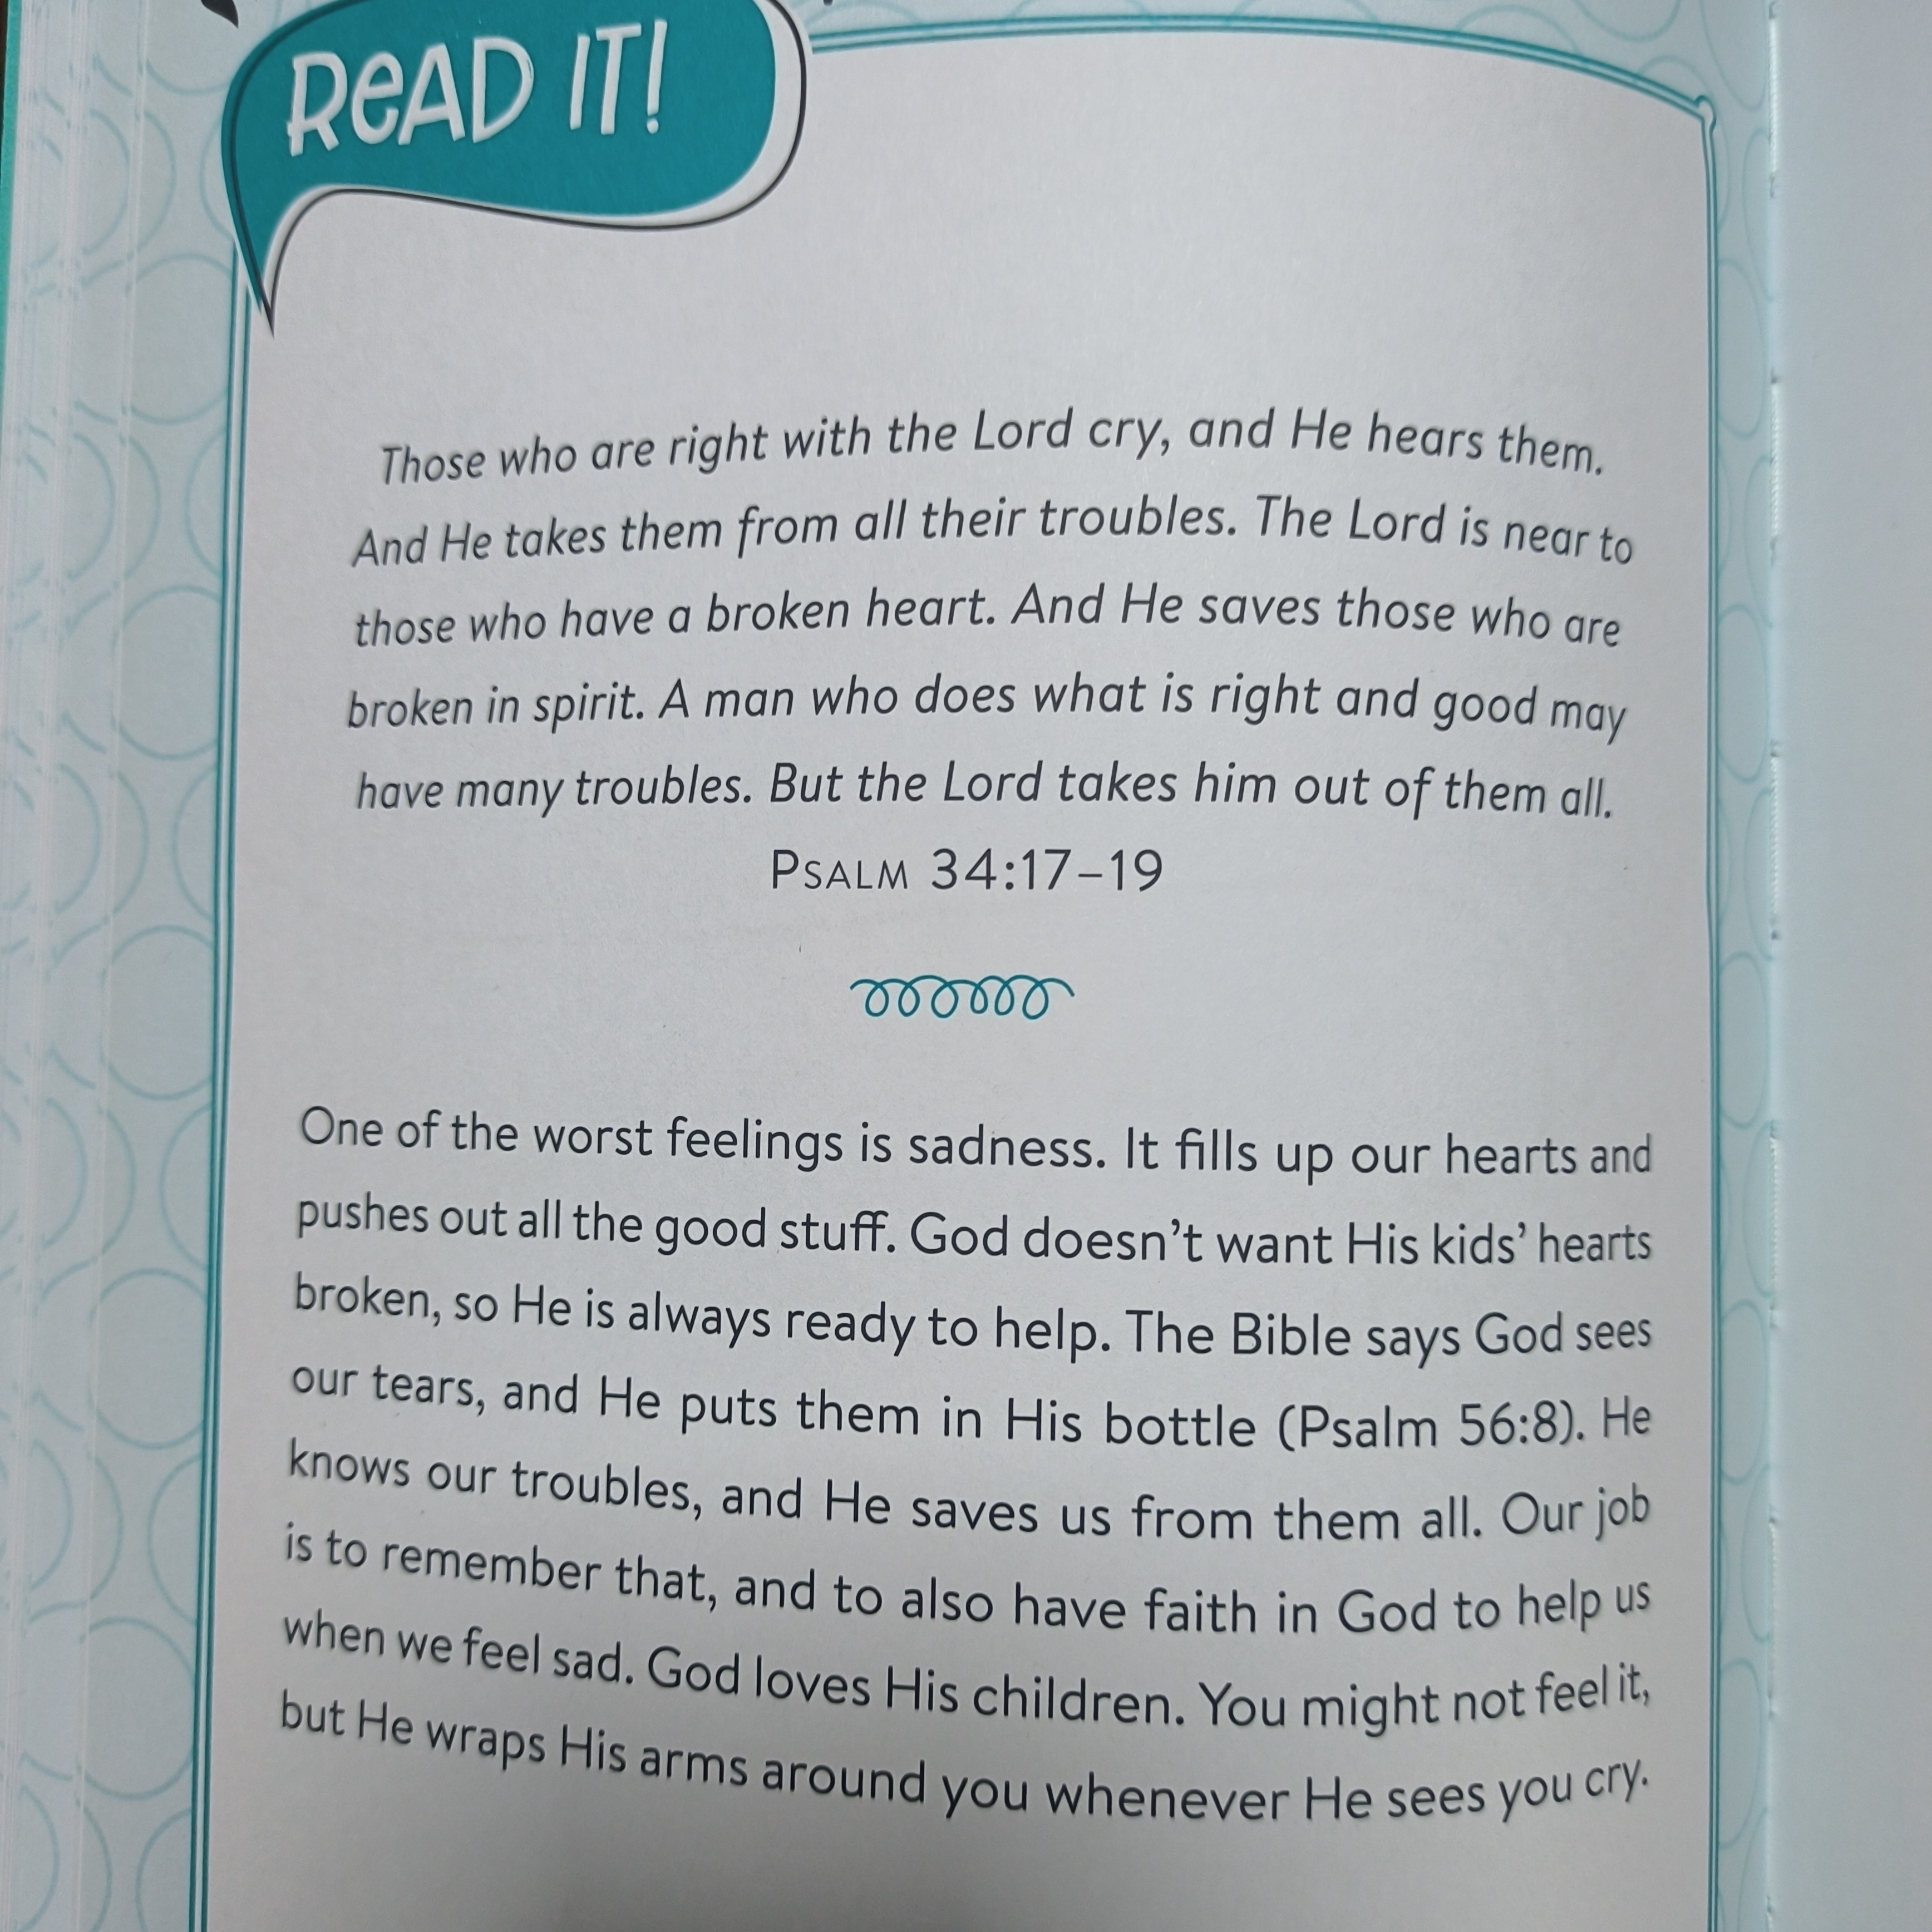 ReAD IT!
Those who are right with the Lord cry, and He hears them.
And He takes them from all their troubles. The Lord is near to
those who have a broken heart. And He saves those who are
broken in spirit. A man who does what is right and good may
have many troubles. But the Lord takes him out of them all.
PSALM 34:17–19
One of the worst feelings is sadness. It fills up our hearts and
pushes out all the good stuff. God doesn’t want His kids’ hearts
broken, so He is always ready to help. The Bible says God sees
our tears, and He puts them in His bottle (Psalm 56:8). He
knows our troubles, and He saves us from them all. Our job
is to remember that, and to also have faith in God to help us
when we feel sad. God loves His children. You might not feel it,
but He wraps His arms around you whenever He sees you cry.